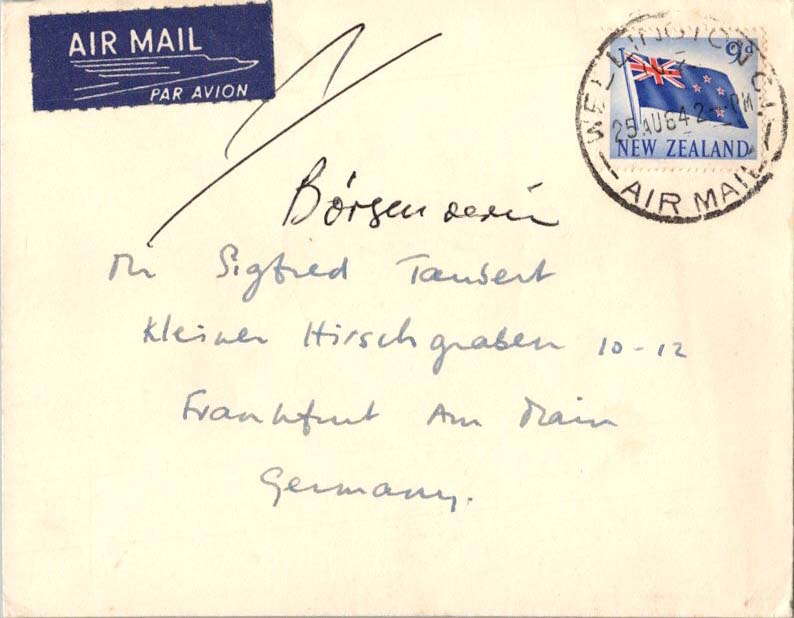 AIR MAIL
PAR AVION
WELLINGTON C.1.
9d
25 AU 64 2 - PM
NEW ZEALAND
AIR MAIL
Börsenverein
Mr Sigfred Taubert
Kleiner Hirschgraben 10-12
Frankfurt Am Main
Germany.